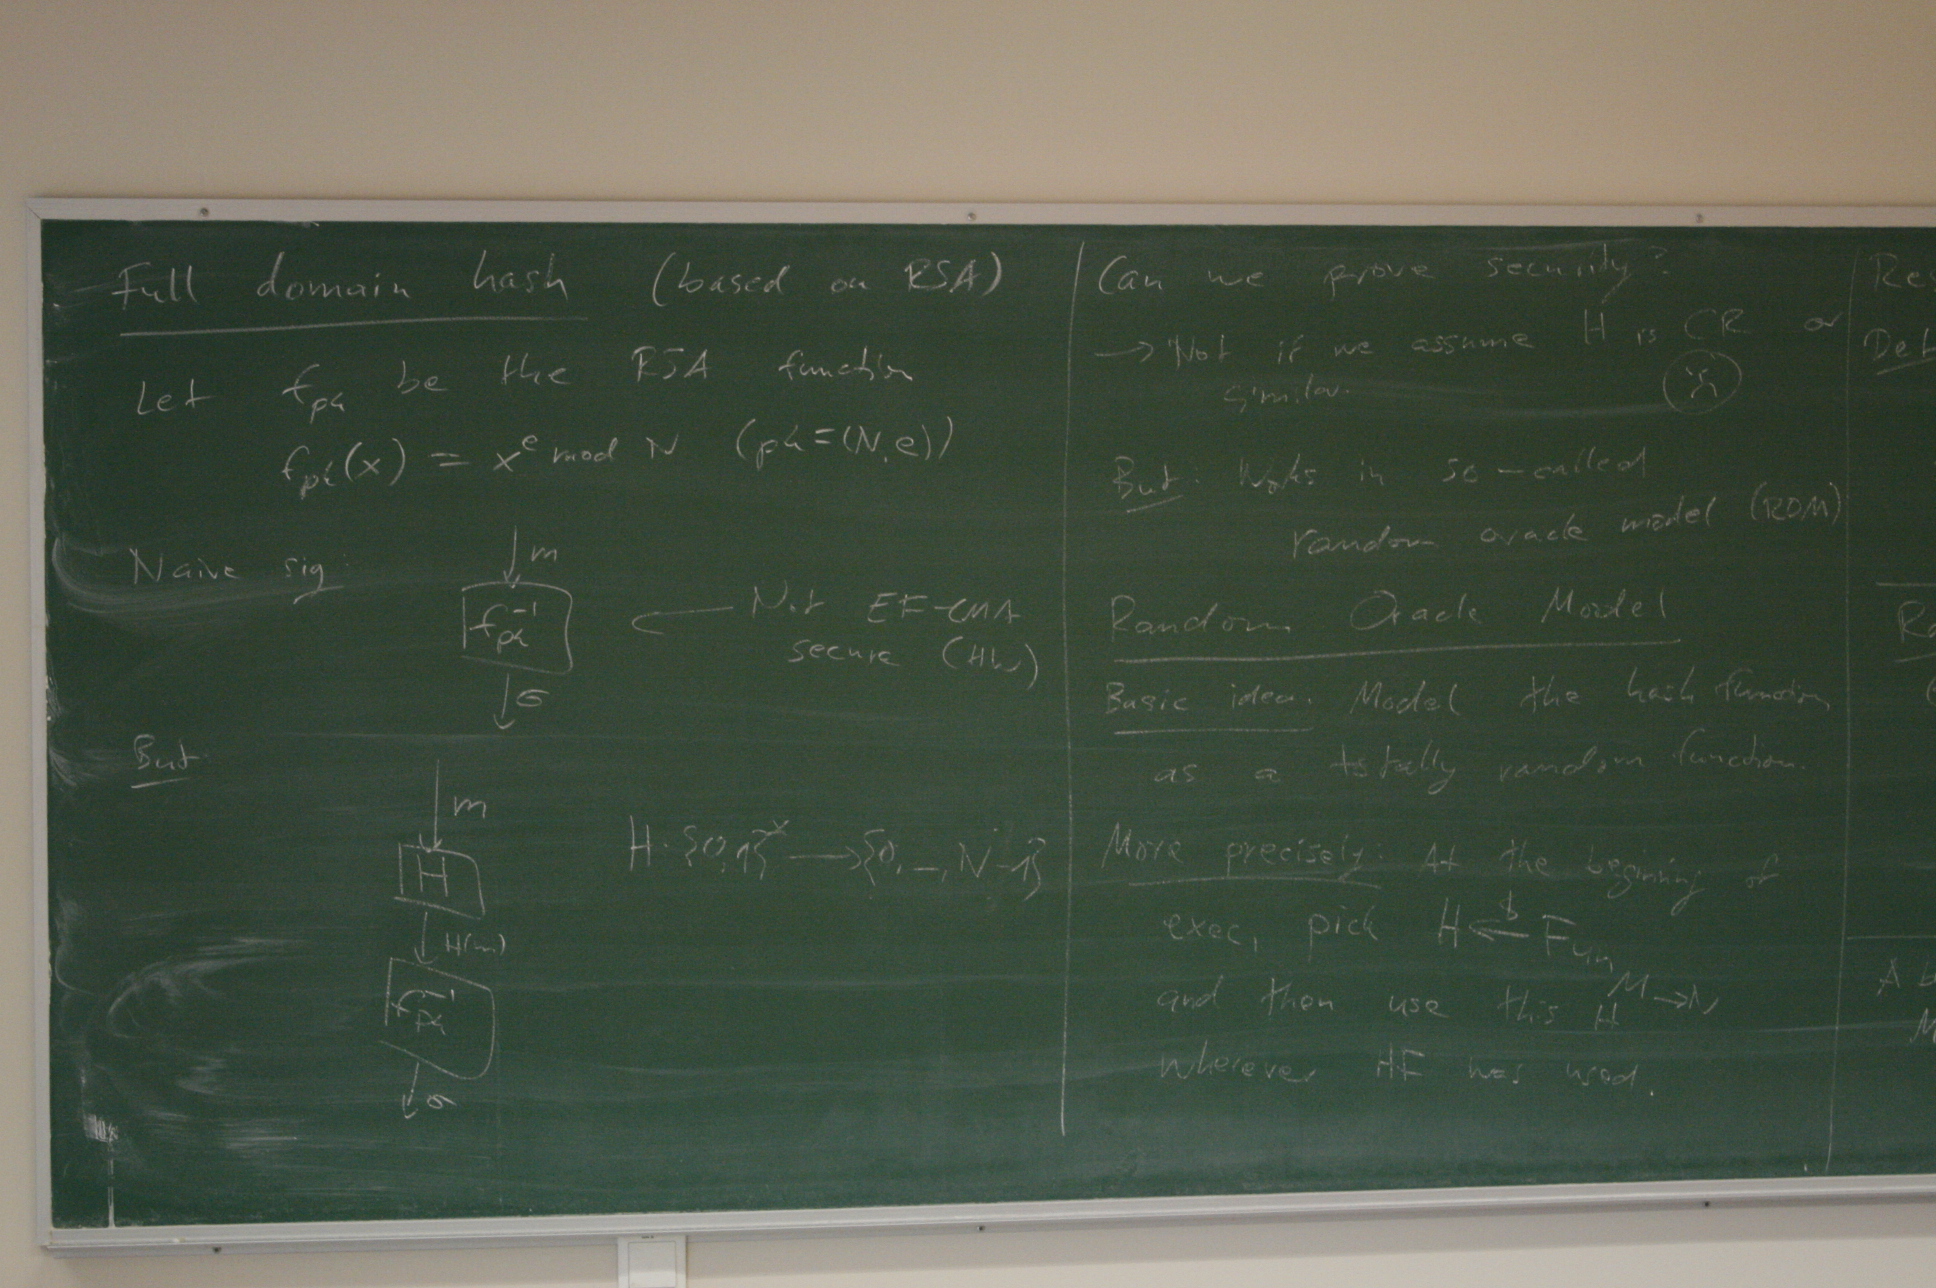 Full domain hash (based on RSA)
Let f_pk be the RSA function
f_pk(x) = x^e mod N (pk=(N,e))
Naive sig:
m
f_pk^-1
σ
Not EF-CMA
secure (HW)
But
m
H
H(m)
f_pk^-1
σ
H: {0,1}* → {0,...,N-1}
Can we prove security?
→ Not if we assume H is CR or
similar.
But: Works in so-called
random oracle model (ROM)
Random Oracle Model
Basic idea. Model the hash function
as a totally random function.
More precisely: At the beginning of
exec, pick H ←$ Fun M→N
and then use this H
wherever HF was used.
Res
Det
Ra
A b
M